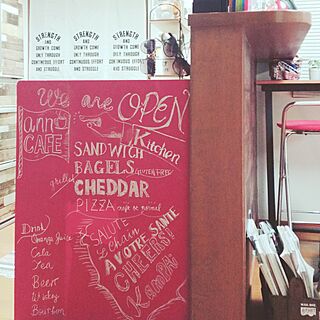 STRENGTH
AND
GROWTH COME
ONLY THROUGH
CONTINUOUS EFFORT
AND STRUGGLE
STRENGTH
AND
GROWTH COME
ONLY THROUGH
CONTINUOUS EFFORT
AND STRUGGLE
STRENGTH
AND
GROWTH COME
ONLY THROUGH
CONTINUOUS EFFORT
AND STRUGGLE
We are OPEN
Kitchen
ann
CAFE
SANDWICH
BAGELS GLUTEN FREE
grilled
CHEDDAR
PIZZA
normal
SALUTE
A VOTRE SANTE
CHEERS!
Kampai
Drink
Orange Juice
Cola
Tea
Beer
Wisky
Bourbon